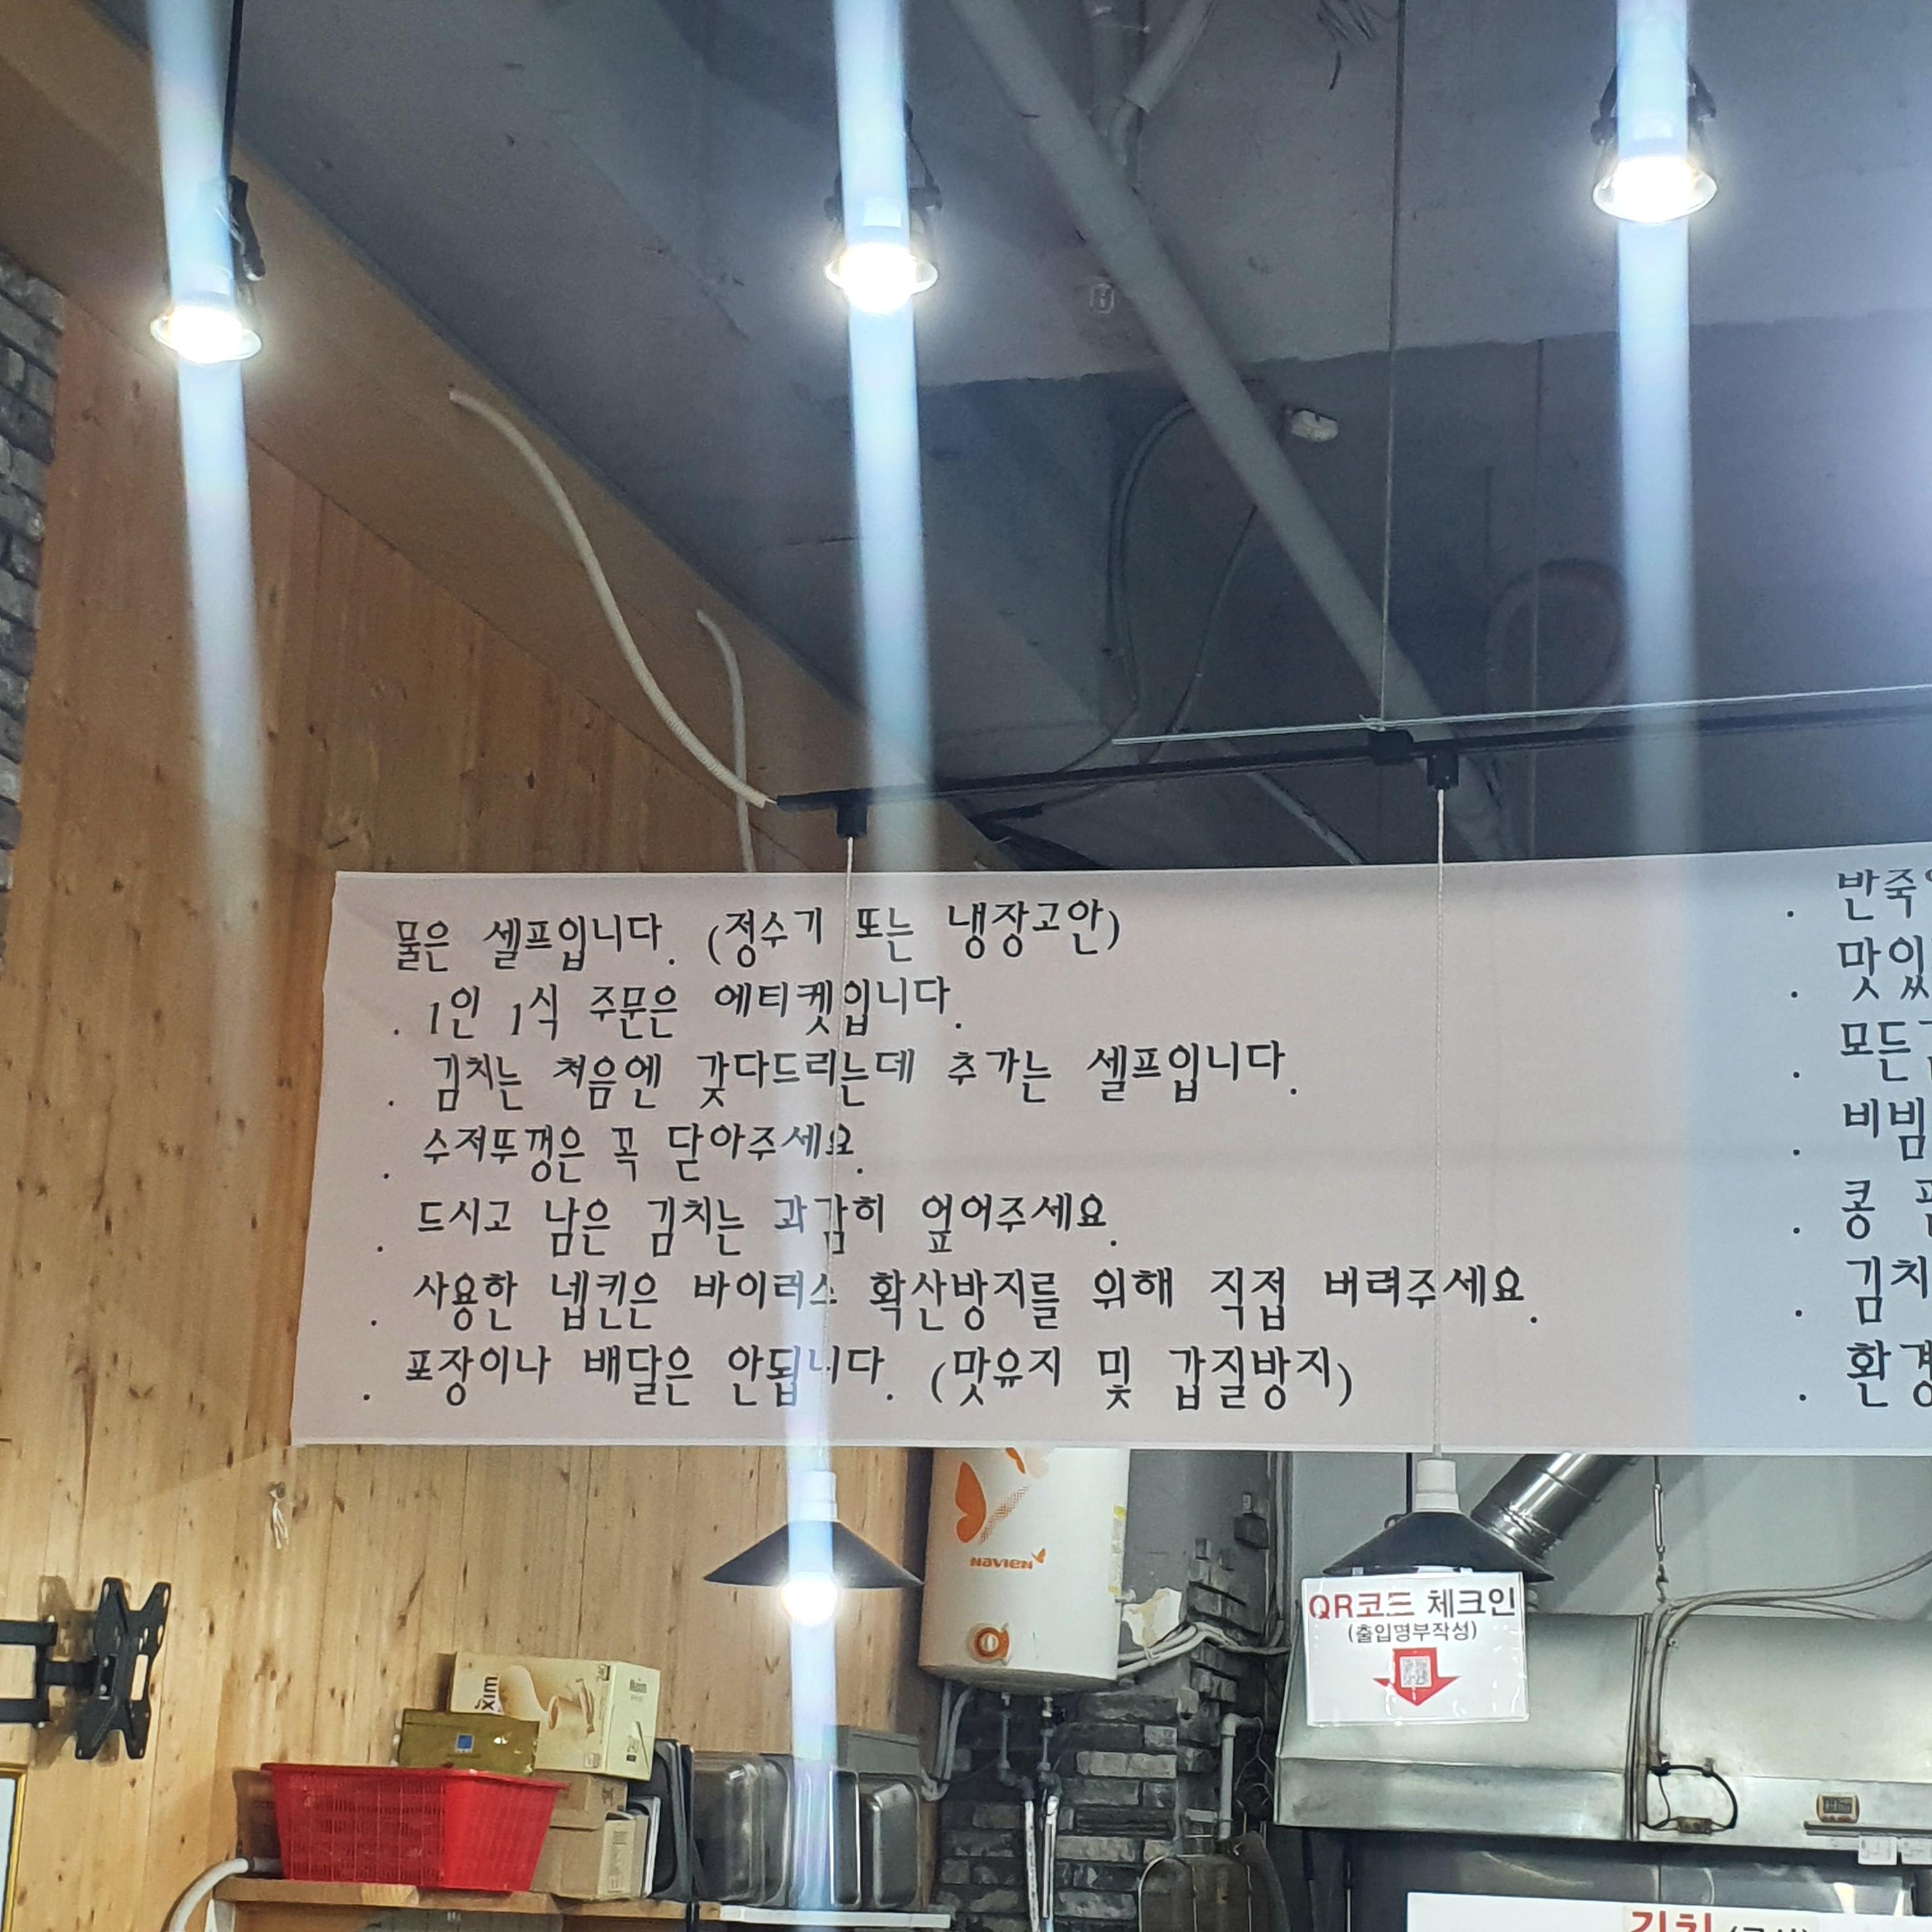 물은 셀프입니다. (정수기 또는 냉장고안)
. 1인 1식 주문은 에티켓입니다.
. 김치는 처음엔 갖다드리는데 추가는 셀프입니다.
. 수저뚜껑은 꼭 닫아주세요.
. 드시고 남은 김치는 과감히 엎어주세요.
. 사용한 넵킨은 바이러스 확산방지를 위해 직접 버려주세요.
. 포장이나 배달은 안됩니다. (맛유지 및 갑질방지)
. 반죽
. 맛있
. 모든
. 비빔
. 콩
. 김치
. 환경
NAVIEN
QR코드 체크인
(출입명부작성)
Maxim
김치